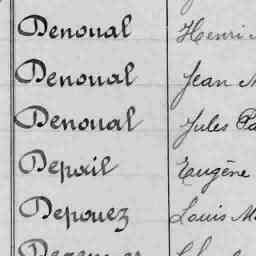 Denoual Henri
Denoual Jean M
Denoual Jules Pa
Depoil Eugène
Depouez Louis M